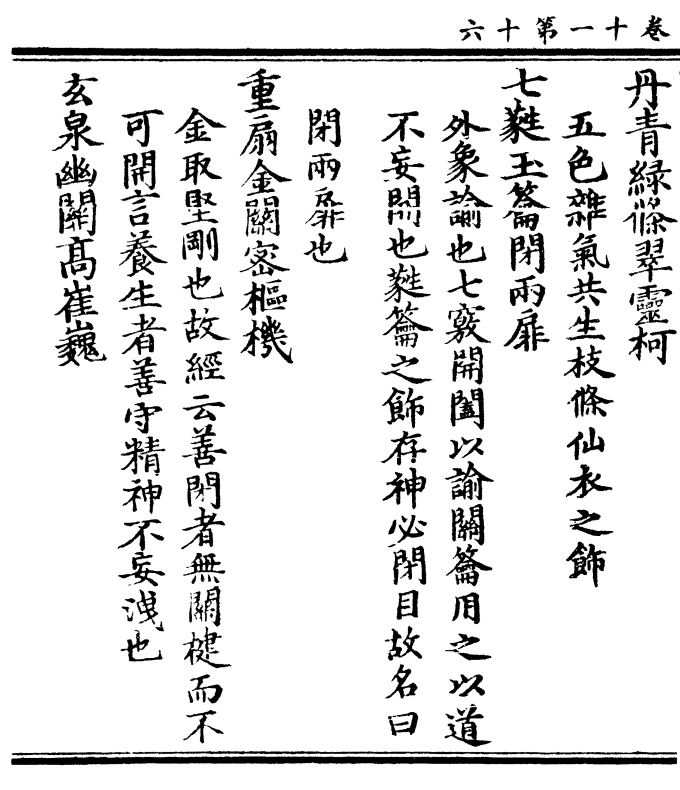 卷十一第十六
丹青綠條翠靈柯
五色雜氣共生枝條仙衣之飾
七蕤玉籥閉兩扉
外象諭也七竅開闔以諭關籥用之以道
不妄開也蕤籥之飾存神必閉目故名曰
閉兩扉也
重扇金關密樞機
金取堅剛也故經云善閉者無關楗而不
可開言養生者善守精神不妄洩也
玄泉幽關高崔巍